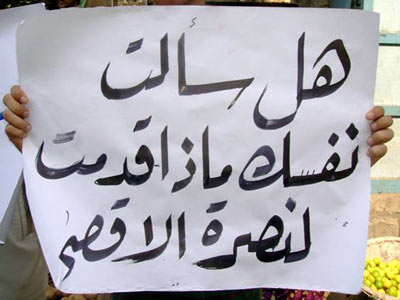 هل سألت
نفسك ماذا قدمت
لنصرة الاقصى